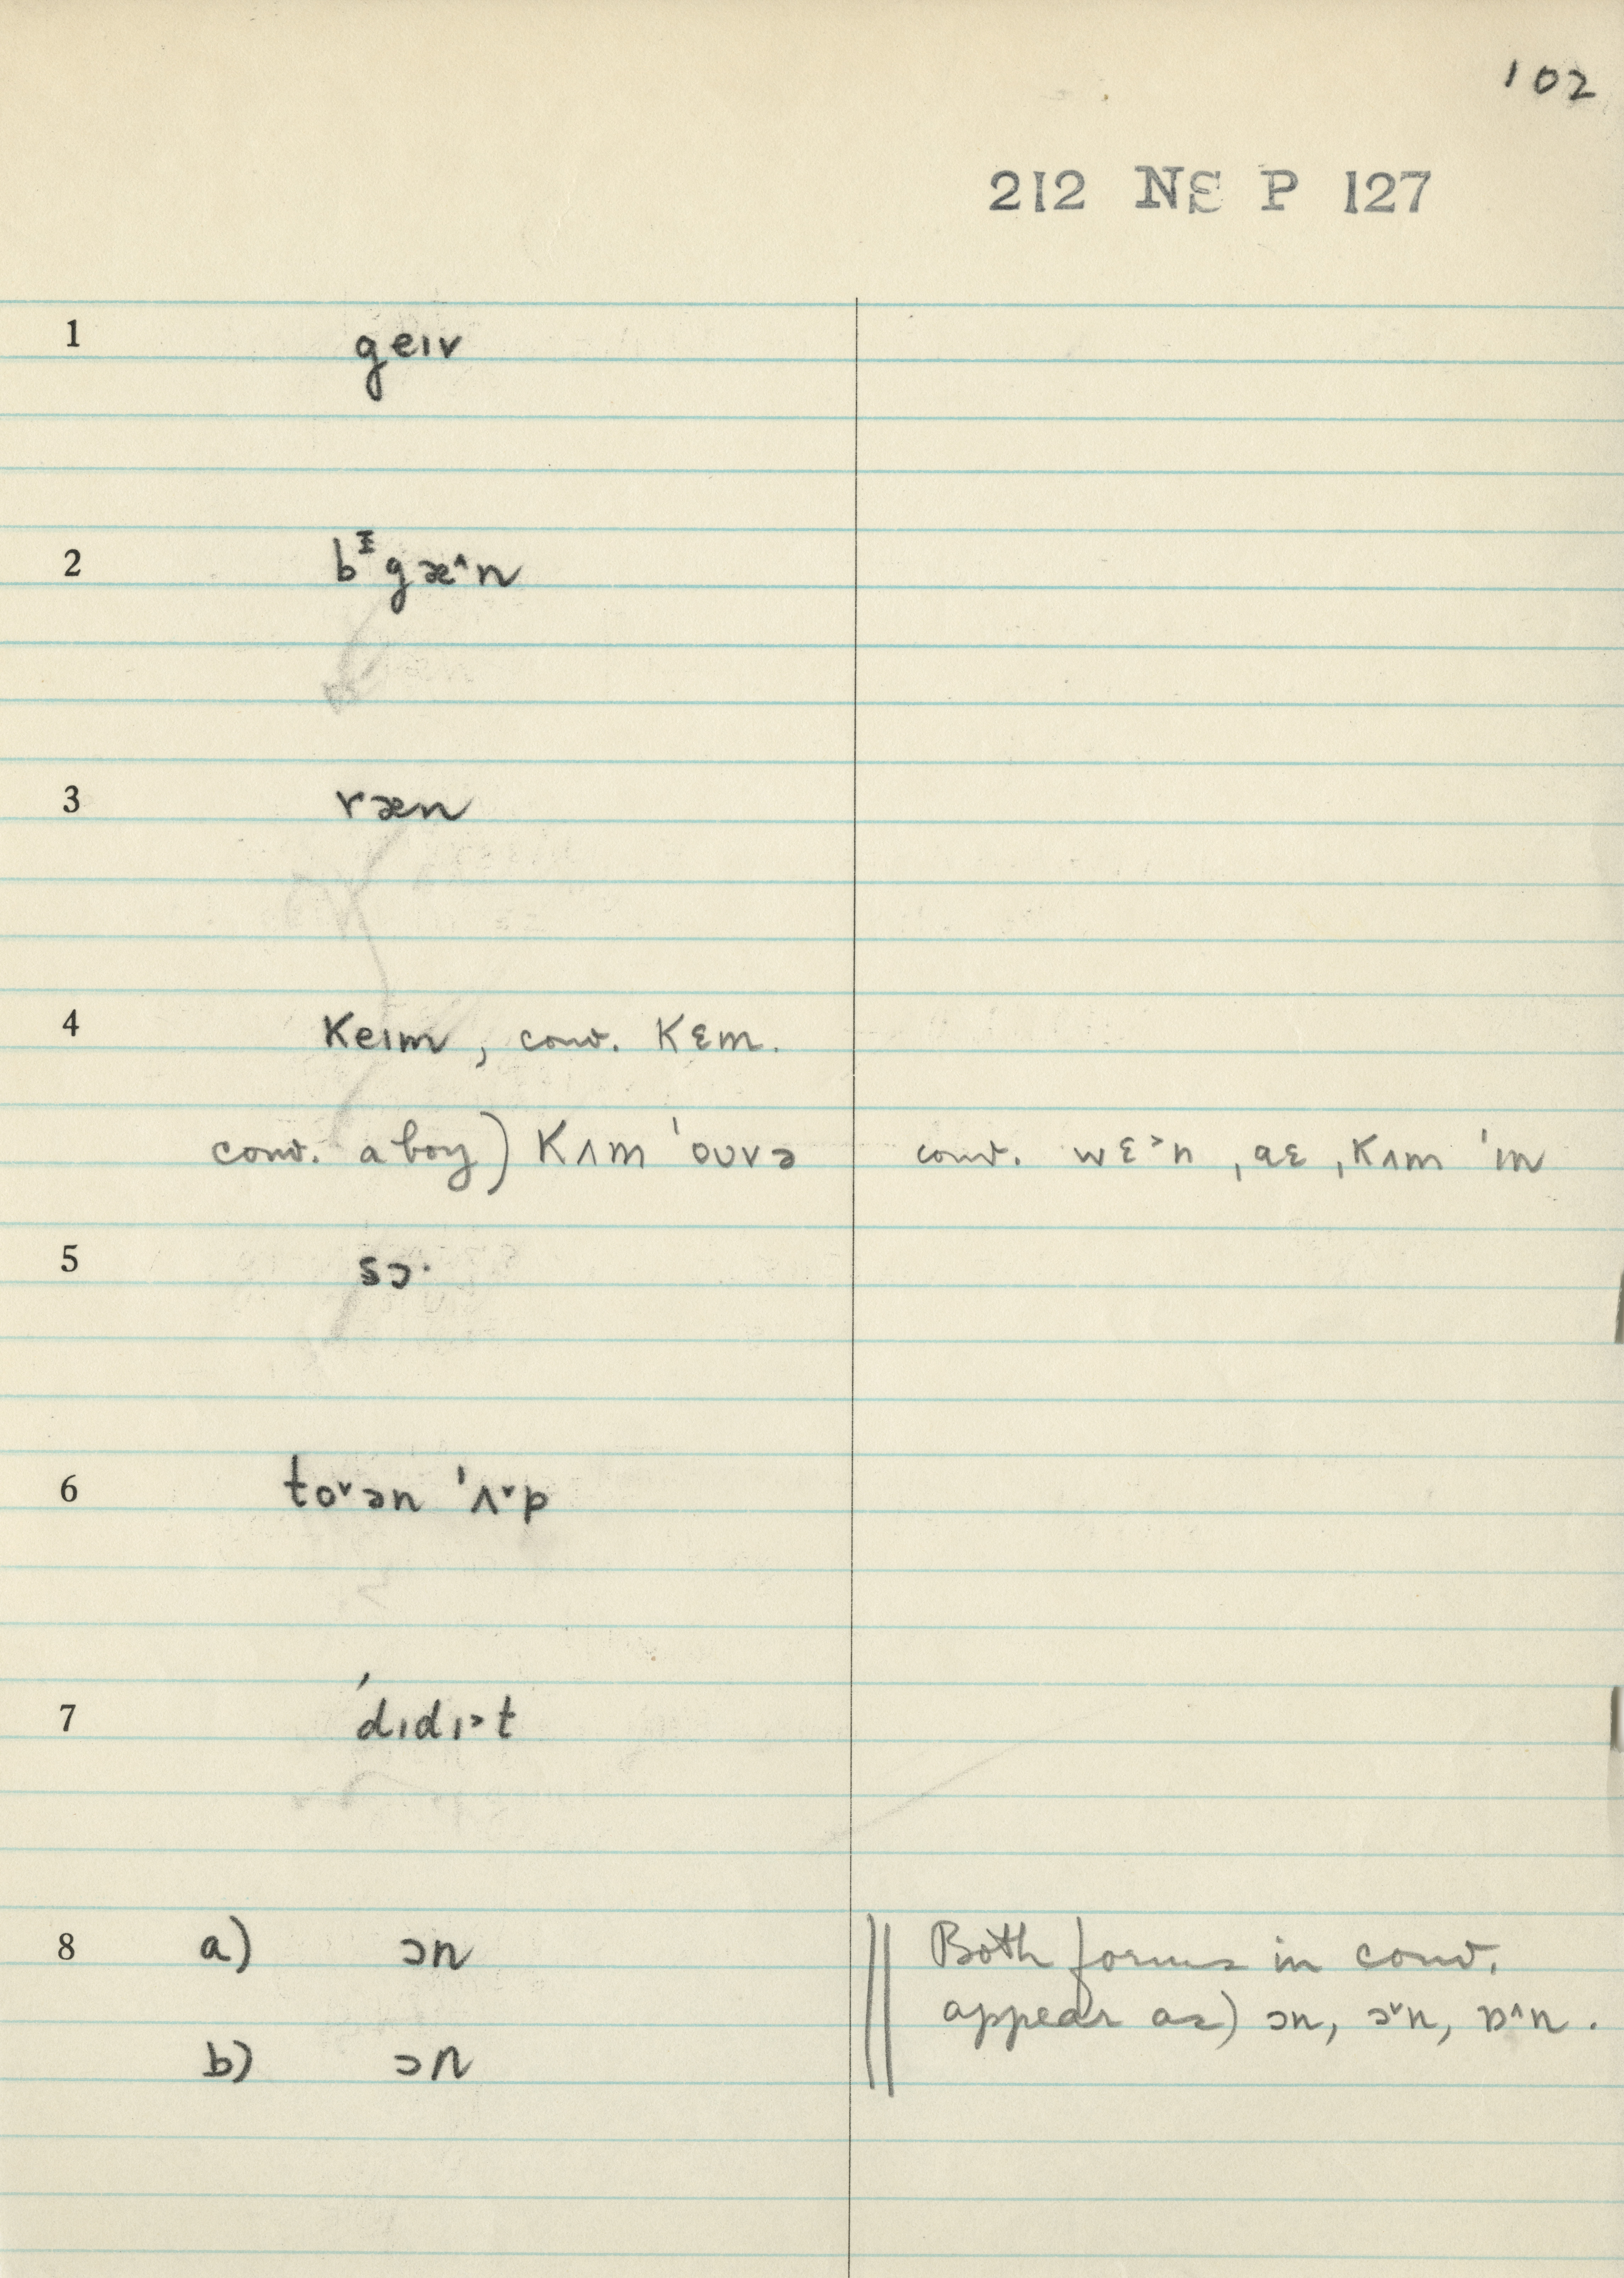 102
212 NS P 127
1 geɪv
2 bᵻgæ˄n
3 ræn
4 Keɪm, conv. Kɛm.
conv. a boy) Kʌm ˈoʊvə conv. wɛ˃n, aɛ, Kʌm ˈɪn
5 sɔ·
6 to˅ən ˈʌ˅p
7 ˈdɪdɪ˃t
8 a) ɔn Both forms in conv.
appear as) ɔn, ɔ˅n, ɒ˄n.
b) ɔn